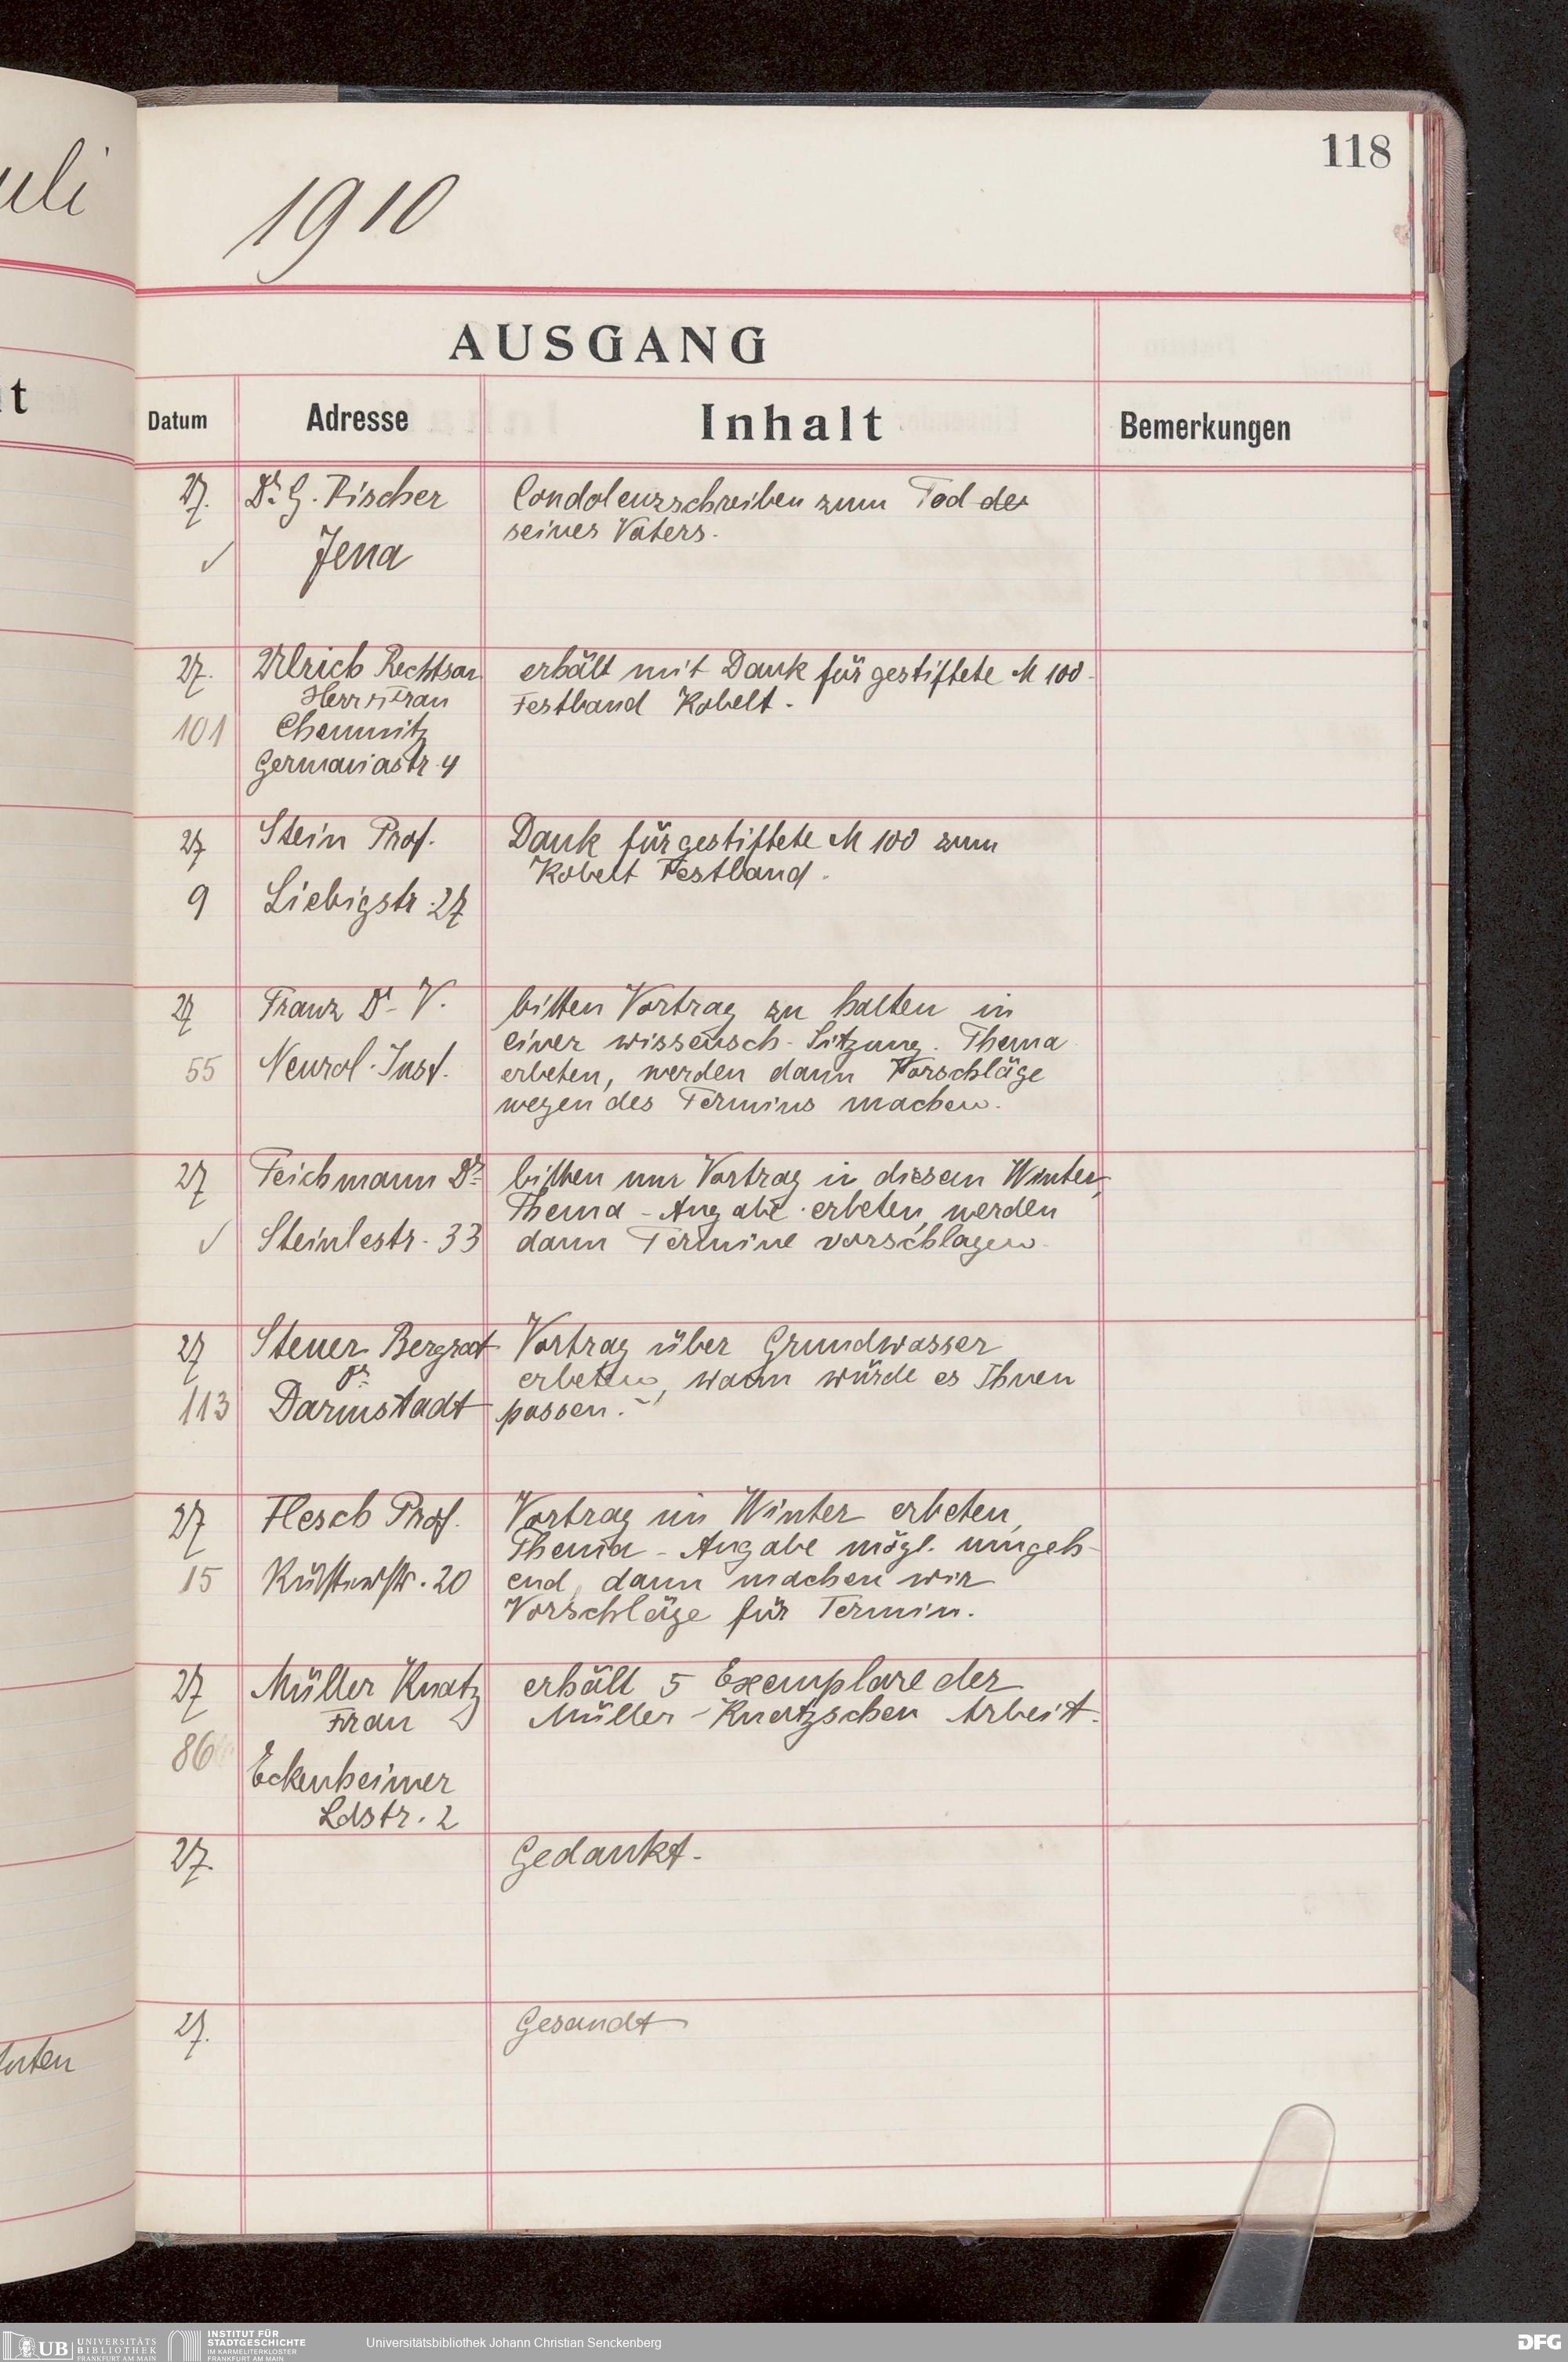 uli
t
nten
118
1910
AUSGANG
Datum Adresse Inhalt Bemerkungen
27. Dr. G. Fischer Condolenzschreiben zum Tod des
seines Vaters.
✓ Jena
27. Ulrich Rechtsan erhält mit Dank für gestiftete M 100
Herr u Frau Festband Kobelt.
101 Chemnitz
Germaniastr. 4
27 Stein Prof. Dank für gestiftete M 100 zum
Kobelt Festband.
9 Liebigstr. 27
27 Franz Dr. V. bitten Vortrag zu halten in
einer wissensch. Sitzung. Thema
55 Neurol. Inst. erbeten, werden dann Vorschläge
wegen des Termins machen.
27 Teichmann Dr. bitten um Vortrag in diesem Winter,
Thema-Angabe erbeten, werden
✓ Steinlestr. 33 dann Termine vorschlagen.
27 Steuer Bergrat Vortrag über Grundwasser
Dr. erbeten, wann würde es Ihnen
113 Darmstadt passen.
27 Flesch Prof. Vortrag im Winter erbeten,
Thema-Angabe mögl. umgeh-
15 20 end, dann machen wir
Vorschläge für Termin.
27 Müller Knatz erhält 5 Exemplare der
Frau Müller-Knatzschen Arbeit.
86
Eckenheimer
Ldstr. 2
27. Gedankt.
27. Gesandt
UB UNIVERSITÄTS
BIBLIOTHEK
FRANKFURT AM MAIN
INSTITUT FÜR
STADTGESCHICHTE
IM KARMELITERKLOSTER
FRANKFURT AM MAIN
Universitätsbibliothek Johann Christian Senckenberg
DFG